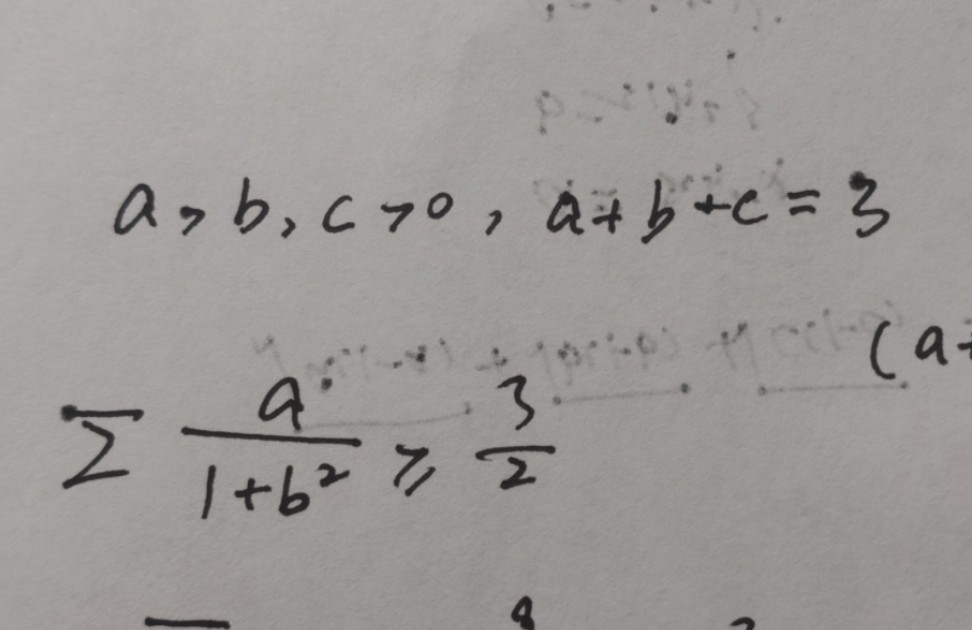 a, b, c > 0, a + b + c = 3
(a +
∑ a / (1 + b²) ≥ 3/2